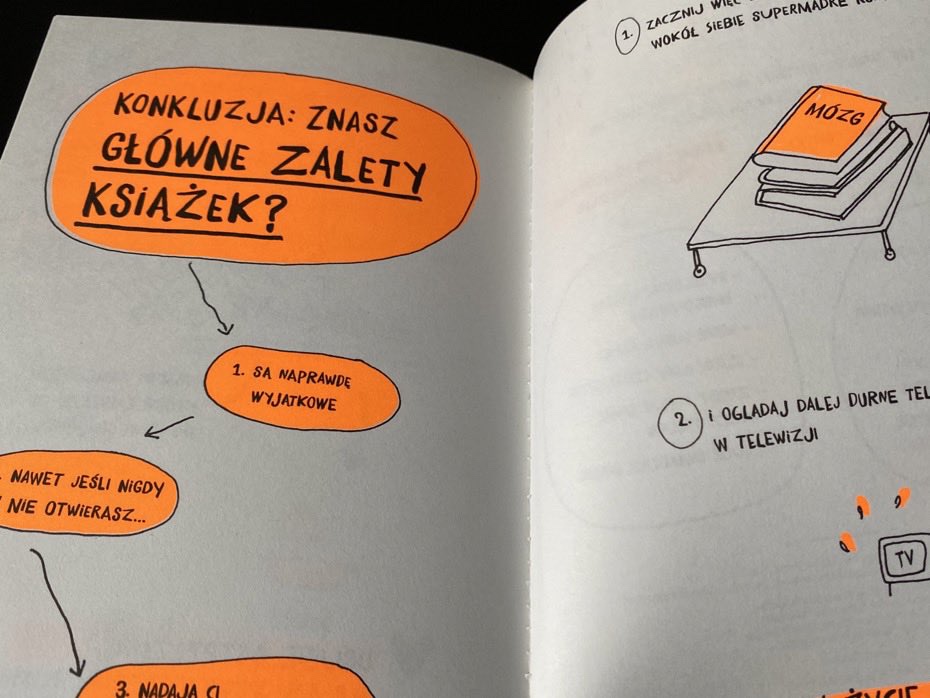 KONKLUZJA: ZNASZ
GŁÓWNE ZALETY
KSIĄŻEK?
1. SĄ NAPRAWDĘ
WYJĄTKOWE
NAWET JEŚLI NIGDY
NIE OTWIERASZ...
3. NADAJĄ CI
1. ZACZNIJ WIĘC
WOKÓŁ SIEBIE SUPERMĄDRE
MÓZG
2. I OGLĄDAJ DALEJ DURNE
W TELEWIZJI
TV
ŻYCIE